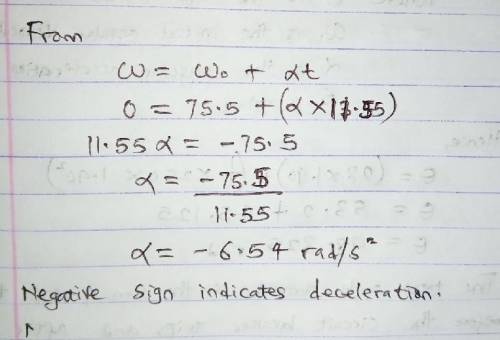 From
ω = ω₀ + αt
0 = 75.5 + (α × 11.55)
11.55 α = -75.5
α = -75.5
11.55
α = -6.54 rad/s²
Negative sign indicates deceleration.